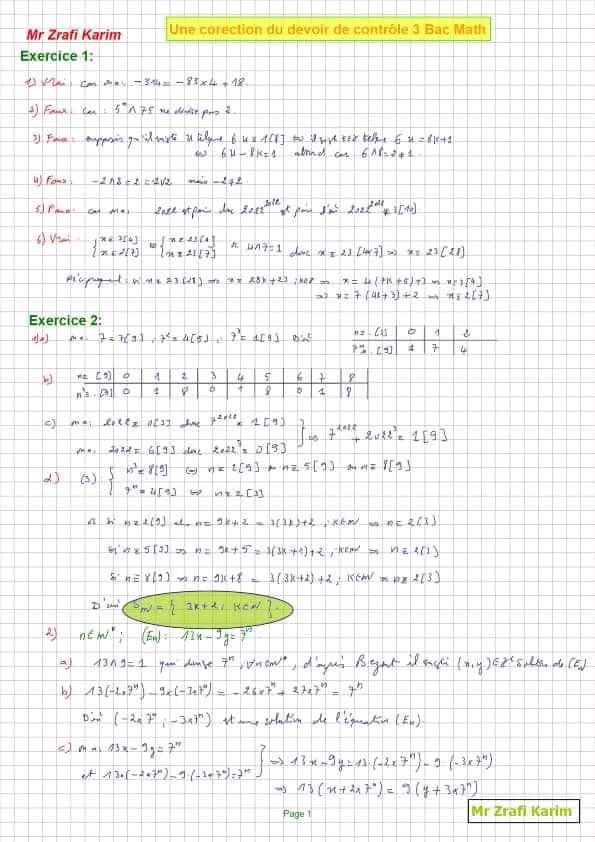 Mr Zrafi Karim
Une corection du devoir de contrôle 3 Bac Math
Exercice 1:
1) Vrai : car on a : -314 = -83×4 + 18.
2) Faux : car : 5ⁿ∧75 ne divise pas 2
3) Faux : supposons qu'il existe u tq 6u ≡ 1[8] ⇔ il existe k∈ℤ 6u = 8k+1
⇔ 6u - 8k = 1 absurde car 6∧8 = 2 ≠ 1.
4) Faux : -2∧2 = 2 = 2∨2 mais -2 ≠ 2
5) Faux : car on a 2022 est pair donc 2022²⁰²² est pair 2022²⁰²² ≢ 3[10].
6) Vrai : { x ≡ 3[4] x ≡ 2[7] ⇔ { x ≡ 23[4] x ≡ 23[7] or 4∧7=1 donc x ≡ 23[4×7] ⇒ x ≡ 23[28]
Réciproquement : si x ≡ 23[28] ⇒ x = 28k+23 ; k∈ℤ ⇒ x = 4(7k+5)+3 ⇒ x ≡ 3[4]
⇒ x = 7(4k+3)+2 ⇒ x ≡ 2[7]
Exercice 2:
1)a) on a : 7 ≡ 7[9] ; 7² ≡ 4[9] ; 7³ ≡ 1[9] D'où
n ≡ [3] 0 1 2
7ⁿ ≡ [9] 1 7 4
b) n ≡ [9] 0 1 2 3 4 5 6 7 8
n³ ≡ [9] 0 1 8 0 1 8 0 1 8
c) on a : 2022 ≡ 0[3] donc 7²⁰²² ≡ 1[9]
on a : 2022 ≡ 6[9] donc 2022³ ≡ 0[9] } ⇒ 7²⁰²² + 2022³ ≡ 1[9]
d) (S) : { n³ ≡ 8[9] ⇔ n ≡ 2[9] ou n ≡ 5[9] ou n ≡ 8[9]
7ⁿ ≡ 4[9] ⇔ n ≡ 2[3]
or si n ≡ 2[9] alors n = 9k+2 = 3(3k)+2 ; k∈ℕ ⇒ n ≡ 2[3]
Si n ≡ 5[9] ⇒ n = 9k+5 = 3(3k+1)+2 ; k∈ℕ ⇒ n ≡ 2[3]
Si n ≡ 8[9] ⇒ n = 9k+8 = 3(3k+2)+2 ; k∈ℕ ⇒ n ≡ 2[3]
D'où Sℕ = { 3k+2 ; k∈ℕ }.
2) n∈ℕ* ; (Eₙ) : 13x - 9y = 7ⁿ
a) 13∧9 = 1 qui divise 7ⁿ, ∀n∈ℕ*, d'après Bezout il existe (x,y)∈ℤ² solution de (Eₙ)
b) 13(-2×7ⁿ) - 9×(-3×7ⁿ) = -26×7ⁿ + 27×7ⁿ = 7ⁿ
D'où (-2×7ⁿ ; -3×7ⁿ) est une solution de l'équation (Eₙ).
c) on a : 13x - 9y = 7ⁿ
et 13×(-2×7ⁿ) - 9·(-3×7ⁿ) = 7ⁿ } ⇒ 13x - 9y = 13·(-2×7ⁿ) - 9·(-3×7ⁿ)
⇒ 13(x + 2×7ⁿ) = 9(y + 3×7ⁿ)
Page 1
Mr Zrafi Karim